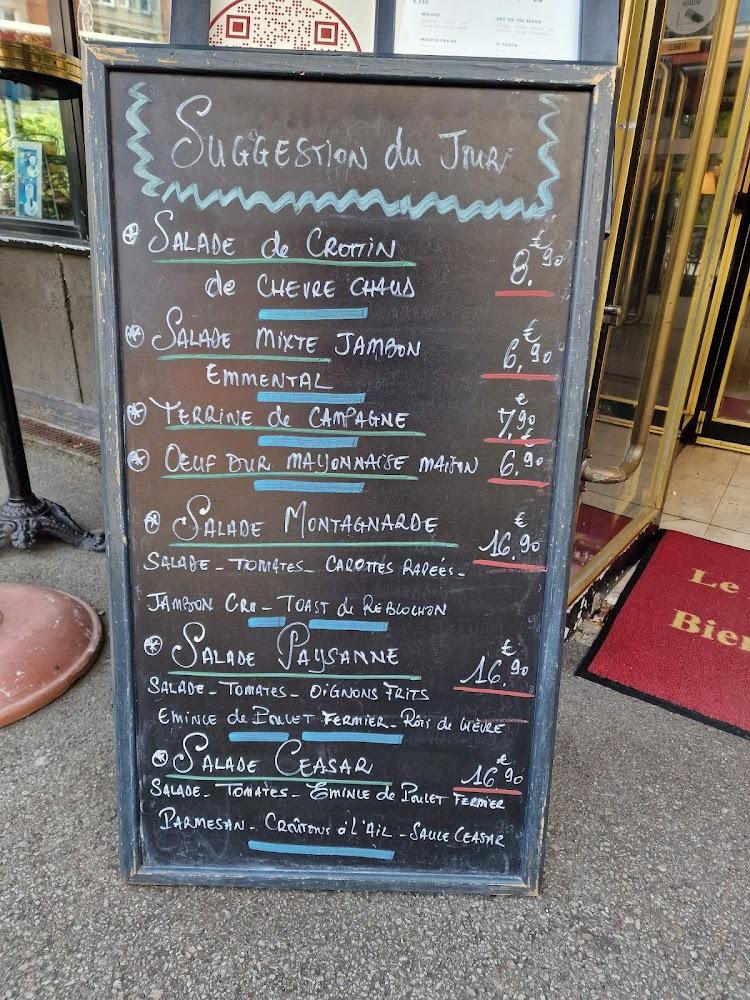 MOJITO
SEX ON THE BEACH
MOJITO FRAISE
TI PUNCH
SUGGESTION du JOUR
SALADE de CROTTIN
de CHEVRE CHAUD 8.€90
SALADE MIXTE JAMBON
EMMENTAL 6,€90
TERRINE de CAMPAGNE 7,€90
OEUF DUR MAYONNAISE MAISON 6.€90
SALADE MONTAGNARDE 16.€90
SALADE - TOMATES - CAROTTES RAPÉES -
JAMBON CRU - TOAST de REBLOCHON
SALADE PAYSANNE 16.€90
SALADE - TOMATES - OIGNONS FRITS
EMINCE de POULET FERMIER - RÔTI de CHÈVRE
SALADE CEASAR 16.€90
SALADE - TOMATES - EMINCE de POULET FERMIER
PARMESAN - CROÛTONS à L'AIL - SAUCE CEASAR
Le
Bien